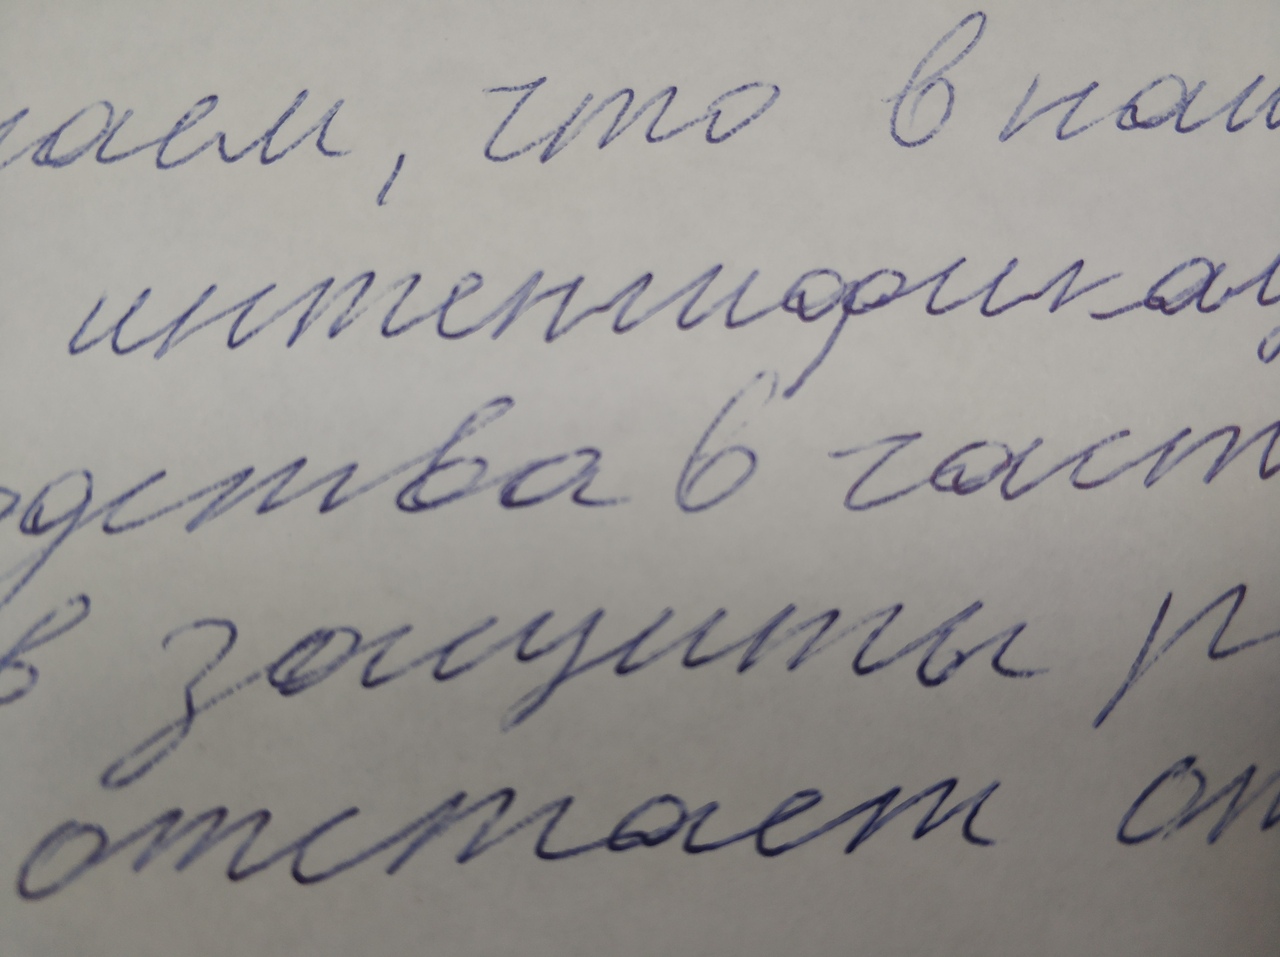 наем, что в наш
интенсификац
одства в част
в защиты р
отстает от